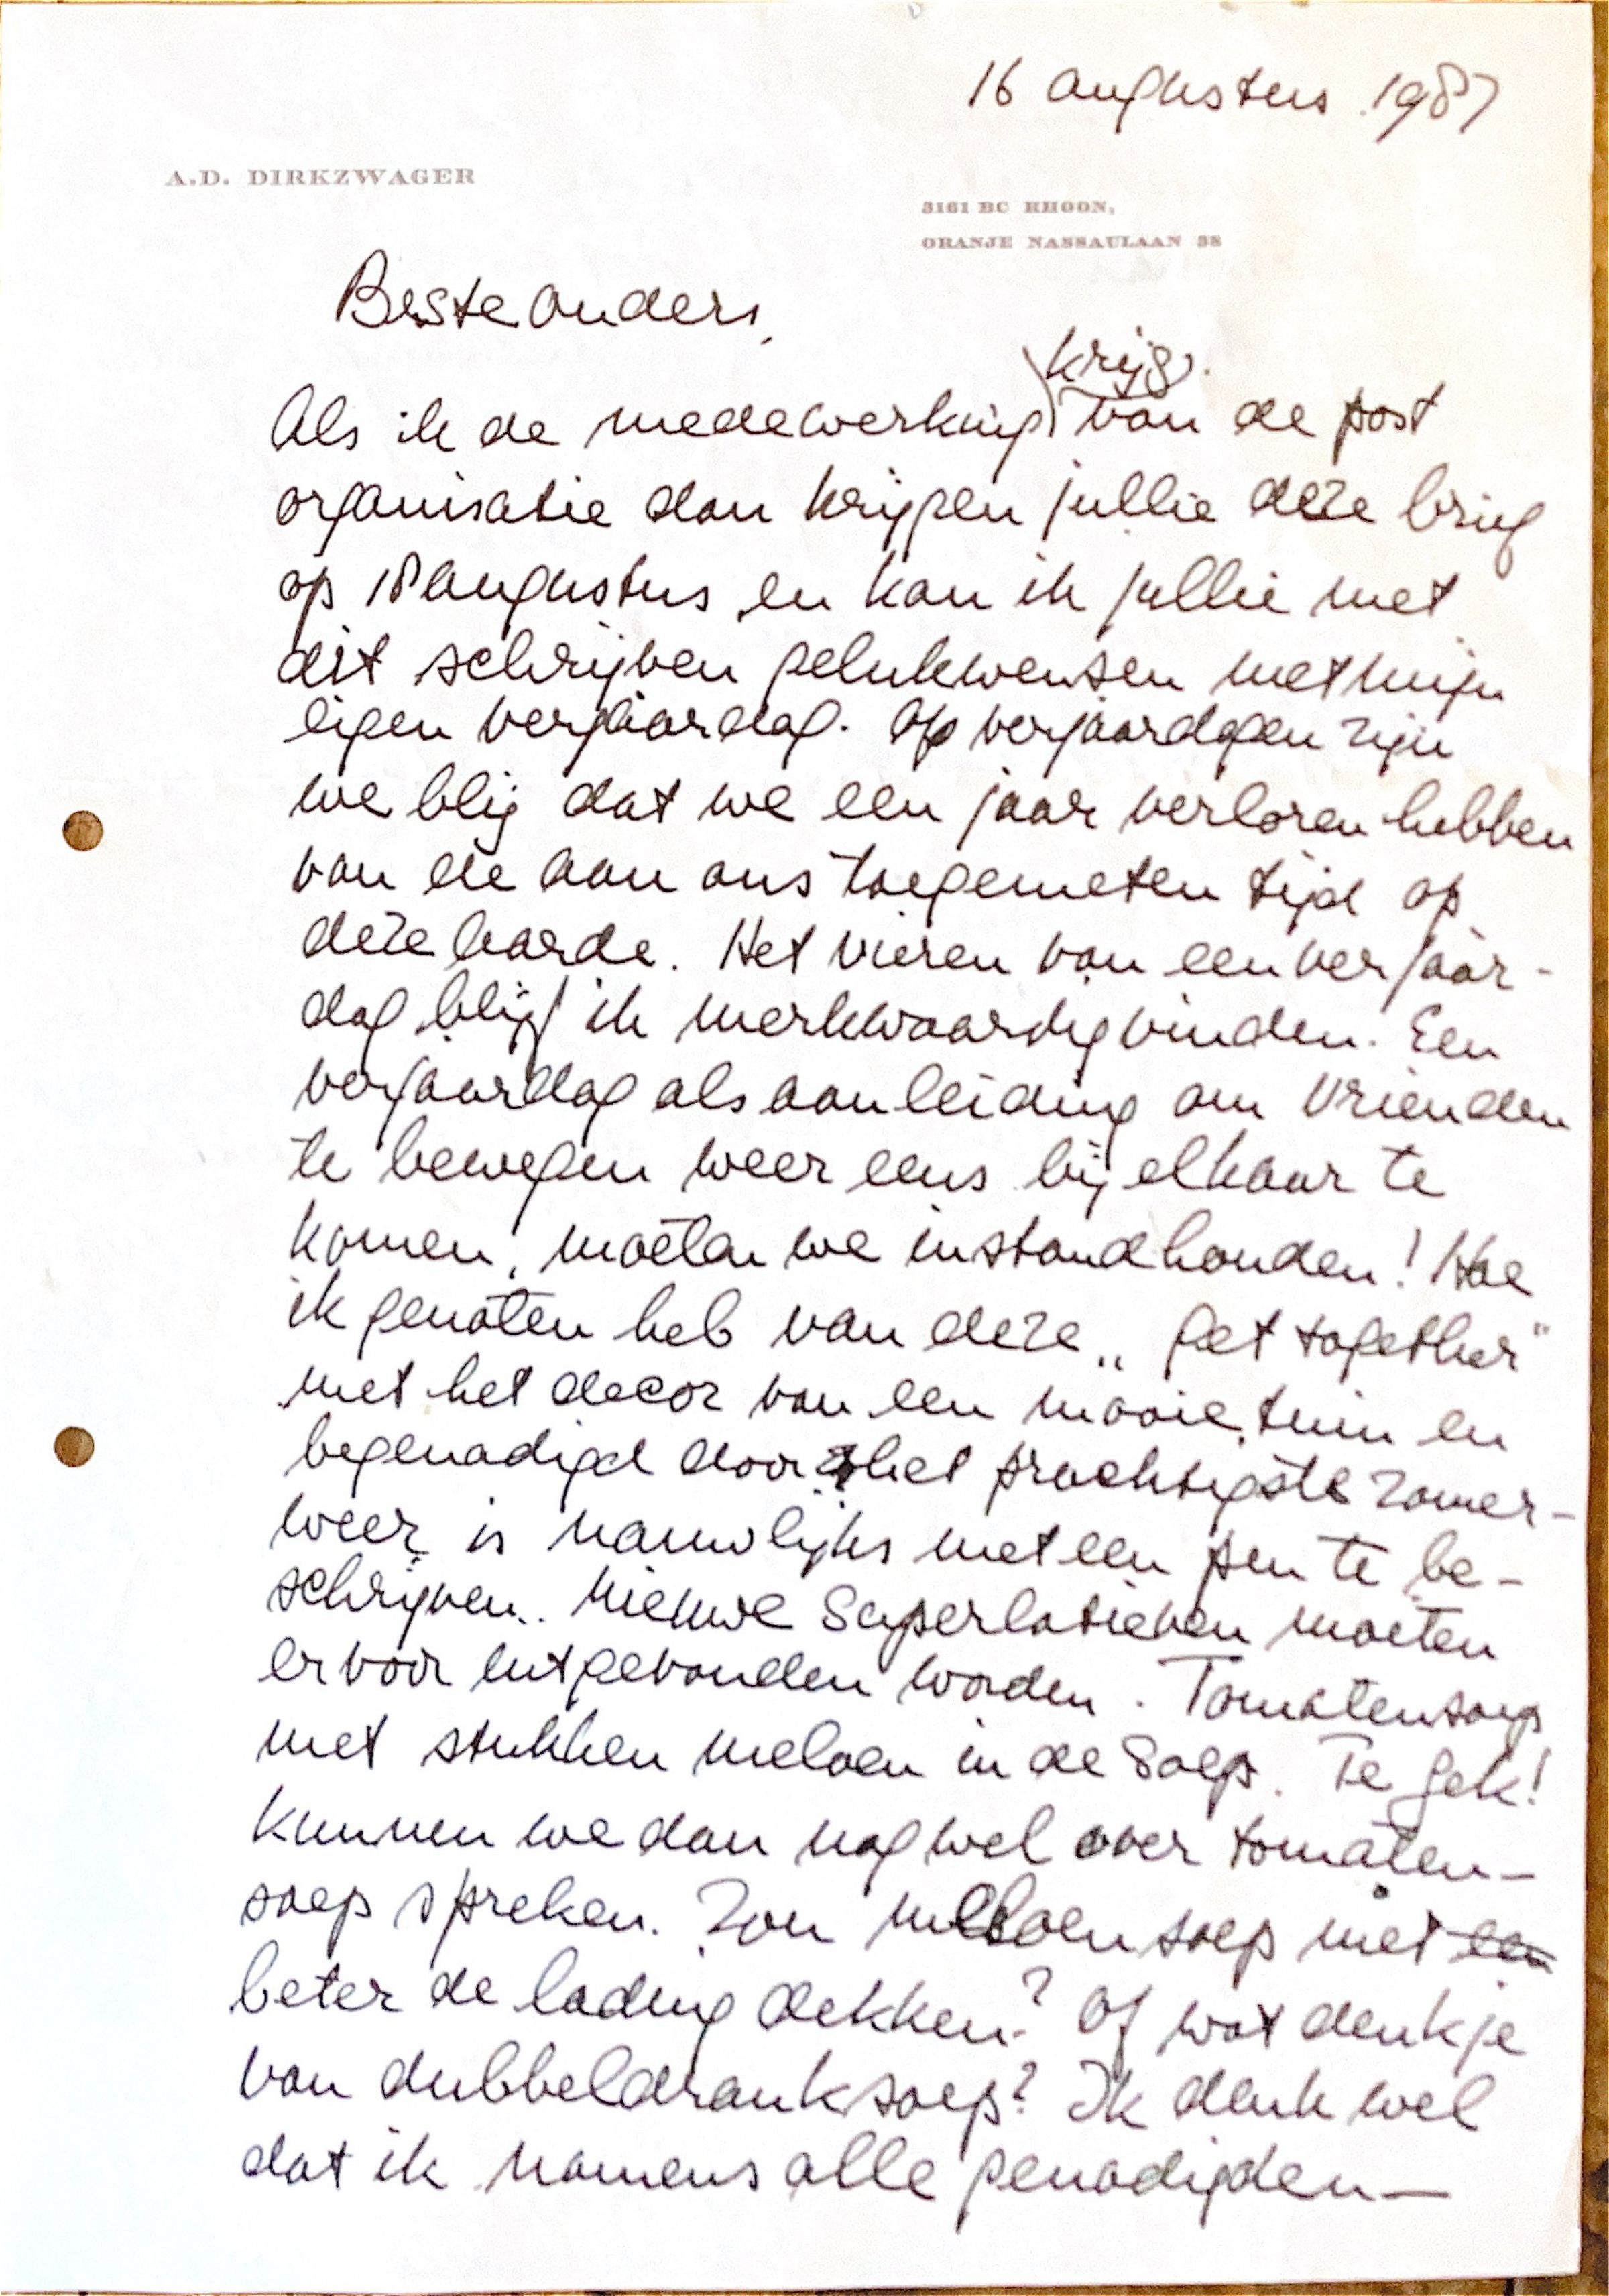 16 augustus 1987
A.D. DIRKZWAGER
3161 BC RHOON,
ORANJE NASSAULAAN 38
Beste ouders,
krijg
Als ik de medewerking van de post
organisatie dan krijgen jullie deze brief
op 18 augustus en kan ik jullie met
dit schrijven gelukwensen met mijn
eigen verjaardag. Op verjaardagen zijn
we blij dat we een jaar verloren hebben
van de aan ons toegemeten tijd op
deze aarde. Het vieren van een verjaar-
dag blijf ik merkwaardig vinden. Een
verjaardag als aanleiding om vrienden
te bewegen weer eens bij elkaar te
komen, moeten we instandhouden! Hoe
ik genoten heb van deze „get together"
met het decor van een mooie tuin en
begenadigd door het prachtigste zomer-
weer is nauwlijks met een pen te be-
schrijven. Nieuwe superlatieven moeten
ervoor uitgevonden worden. Tomatensoep
met stukken meloen in de soep. Te gek!
Kunnen we dan nog wel over tomaten-
soep spreken. Zou meloensoep niet een
beter de lading dekken? Of wat denk je
van dubbeldranksoep? Ik denk wel
dat ik namens alle genodigden—